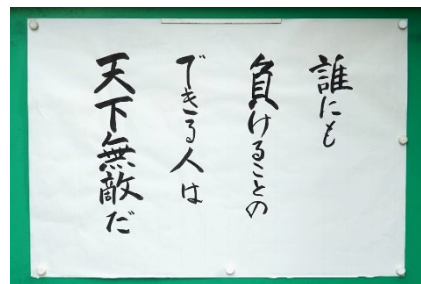 誰にも
負けることの
できる人は
天下無敵だ